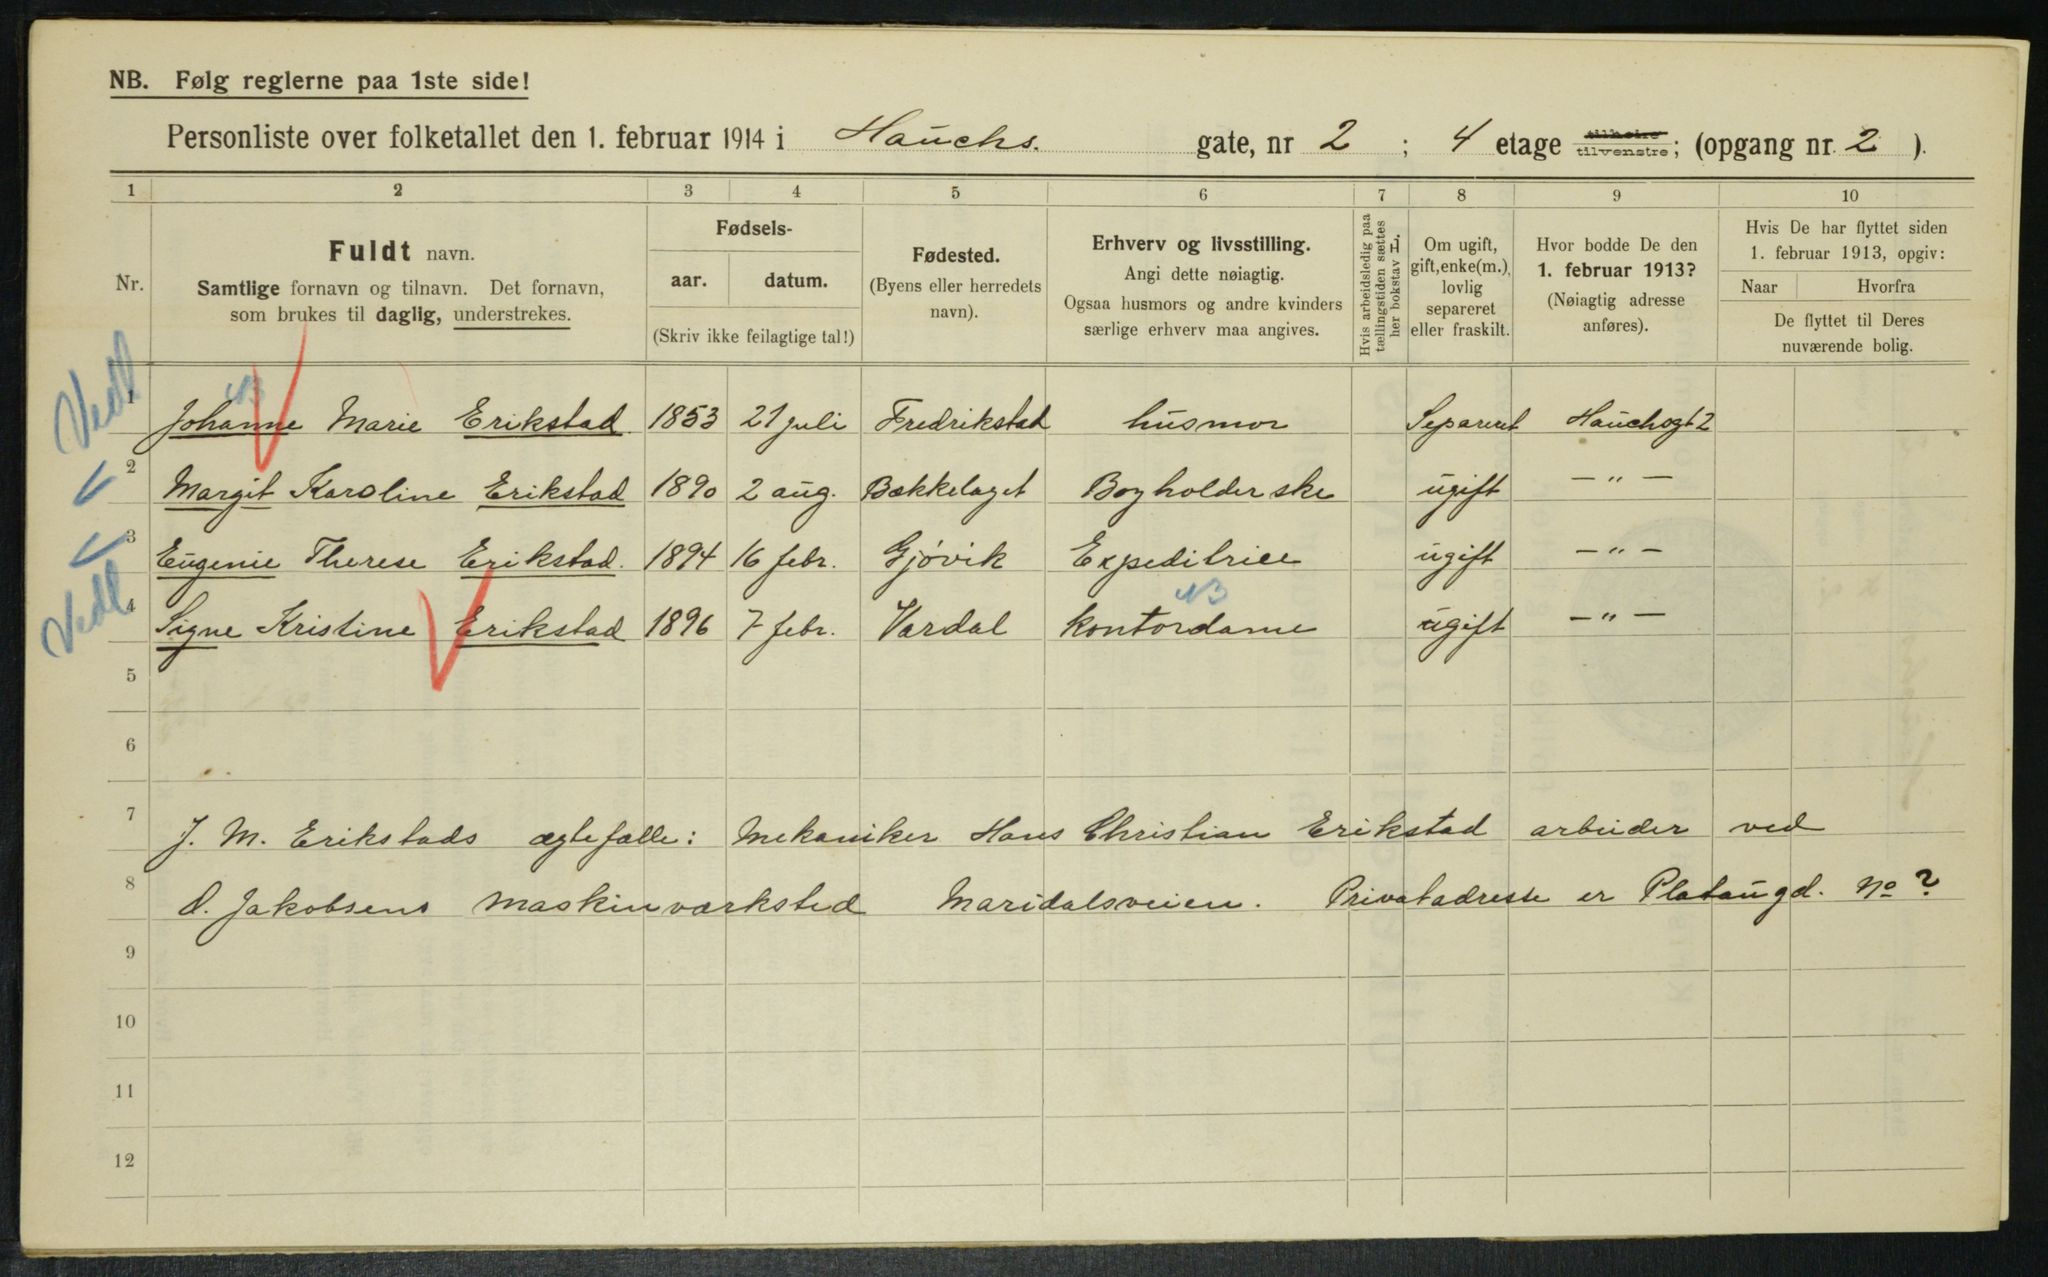 NB. Følg reglerne paa 1ste side!
Personliste over folketallet den 1. februar 1914 i Hauchs. gate, nr 2 ; 4 etage tilhøire tilvenstre; (opgang nr. 2 ).
1 2 3 4 5 6 7 8 9 10
Nr.
Fuldt navn.
Samtlige fornavn og tilnavn. Det fornavn,
som brukes til daglig, understrekes.
Fødsels-
aar. datum.
(Skriv ikke feilagtige tal!)
Fødested.
(Byens eller herredets
navn).
Erhverv og livsstilling.
Angi dette nøiagtig.
Ogsaa husmors og andre kvinders
særlige erhverv maa angives.
Hvis arbeidsledig paa
tællingstiden sættes
her bokstav L.
Om ugift,
gift, enke(m.),
lovlig
separeret
eller fraskilt.
Hvor bodde De den
1. februar 1913?
(Nøiagtig adresse
anføres).
Hvis De har flyttet siden
1. februar 1913, opgiv:
Naar Hvorfra
De flyttet til Deres
nuværende bolig.
Vedl
NB
1 Johanne Marie Erikstad. 1853 21 juli Fredrikstad husmor Separeret Hauchsgt 2
2 Margit Karoline Erikstad 1890 2 aug. Bækkelaget Bogholderske ugift — " —
3 Eugenie Therese Erikstad. 1894 16 febr. Gjövik Expeditrice ugift — " —
Vedl
NB
4 Signe Kristine Erikstad 1896 7 febr. Vardal kontordame ugift — " —
5
6
7 J. M. Erikstads ægtefælle: Mekaniker Hans Christian Erikstad arbeider ved
8 O. Jakobsens maskinværksted Maridalsveien. Privatadresse er Plataugd. No ?
9
10
11
12